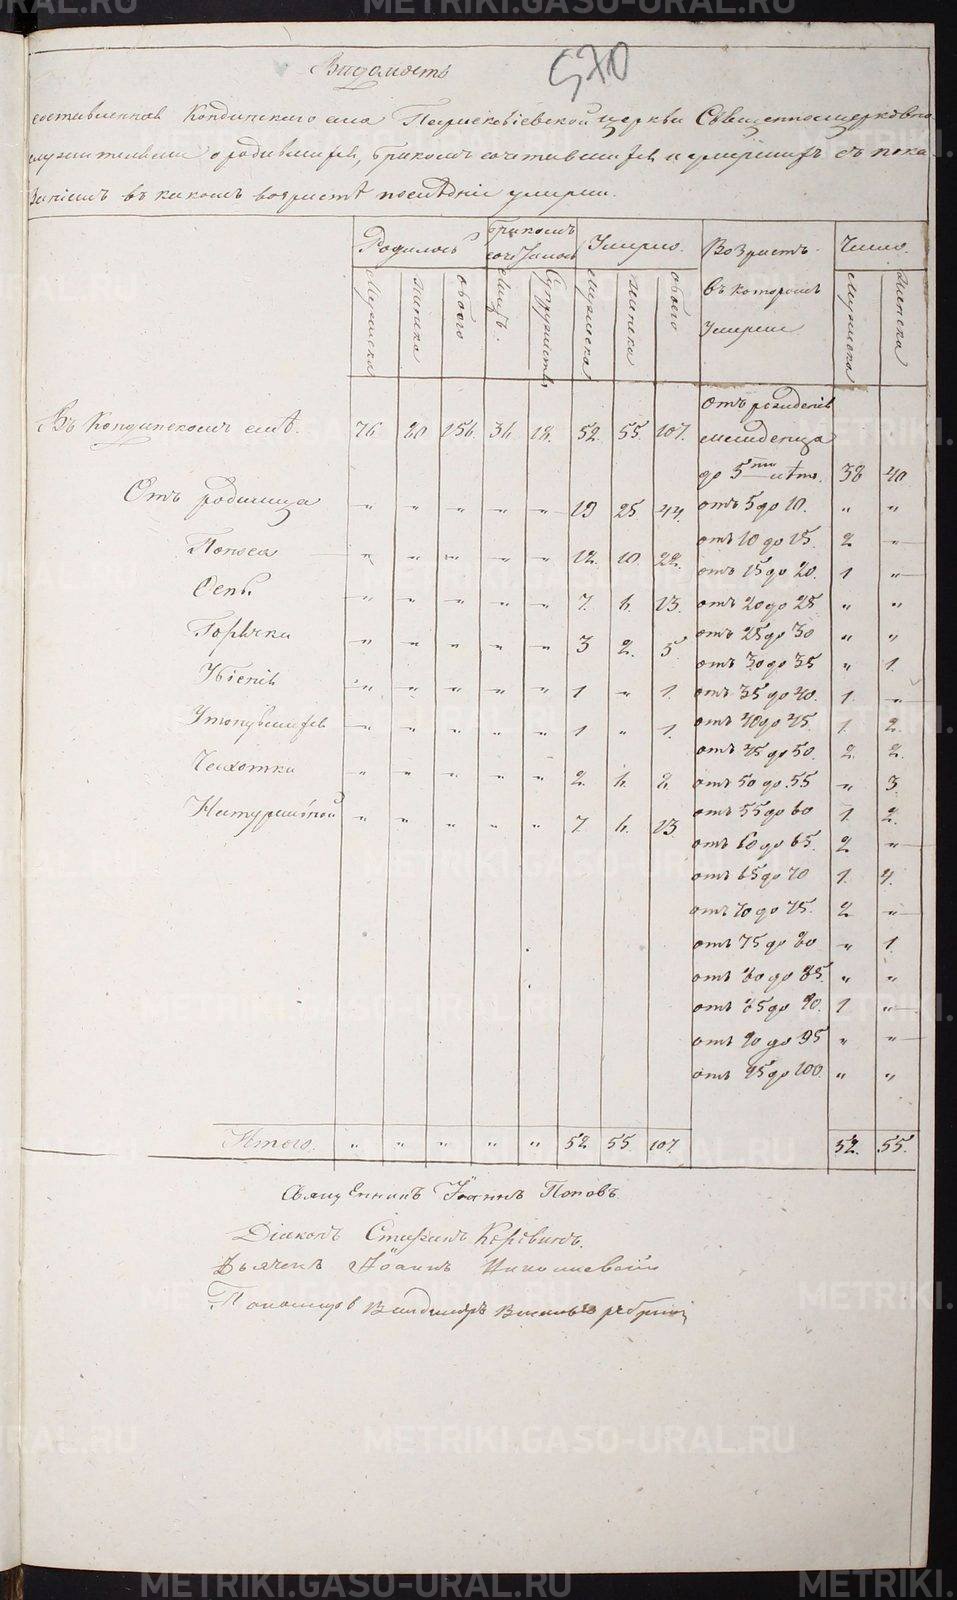 570
Вѣдомость
составленная Кондинскаго села Параскевіевской церкви Священноцерковно
служителями о родившихся, бракомъ сочетавшихся и умершихъ съ пока
заніемъ въ какомъ возрастѣ послѣдніе умерли.
Родилось Бракомъ сочеталось Умерло. Возрастъ въ которомъ умерли Число.
Мужеска Женска обоего Лицъ. Супружествъ Мужеска Женска обоего Мужеска Женска
Въ Кондинскомъ селѣ. 76 80 156. 36. 18. 52. 55. 107. отъ рожденія младенца
до 5ти лѣтъ. 38 40.
Отъ родимца „ „ „ „ „ 19 25. 44. отъ 5 до 10. „ „
отъ 10 до 15. 2 „
Поноса „ „ „ „ „ 12. 10. 22. отъ 15 до 20. 1 „
Оспы „ „ „ „ „ 7. 6. 13. отъ 20 до 25 „ „
Горячки „ „ „ „ „ 3 2. 5 отъ 25 до 30 „ „
отъ 30 до 35 „ 1.
Убіенія „ „ „ „ „ 1 „ 1. отъ 35 до 40. 1. „
Утонувшихся „ „ „ „ „ 1 „ 1. отъ 40 до 45. 1. 2.
отъ 45 до 50. 2. 2.
Чахотки „ „ „ „ „ 2. 6. 8. отъ 50 до 55 „ 3.
Натуральной „ „ „ „ „ 7 6. 13. отъ 55 до 60 1. 2.
отъ 60 до 65. 2 „
отъ 65 до 70 1. 4.
отъ 70 до 75. 2 „
отъ 75 до 80 „ 1.
отъ 80 до 85. „ „
отъ 85 до 90. 1 „
отъ 90 до 95 „ „
отъ 95 до 100. „ „
Итого. „ „ „ „ „ 52 55 107. 52. 55.
Священникъ Іоаннъ Поповъ.
Діаконъ Стефанъ
Дьячекъ Іоаннъ Николаевскій
Пономарь Владимиръ
METRIKI.GASO-URAL.RU